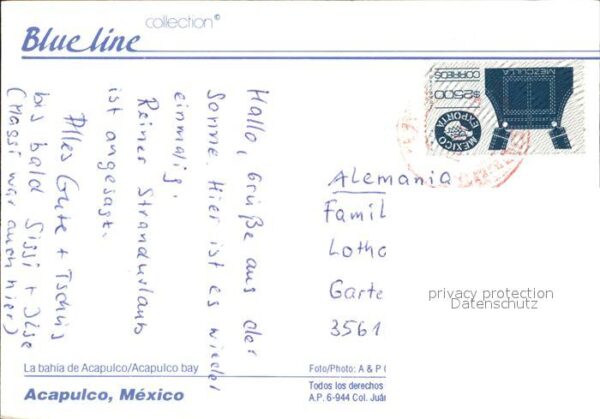 collection©
Blueline
Hallo, Grüße aus der
Sonne. Hier ist es wieder
einmalig.
Reiner Strandurlaub
ist angesagt.
Alles Gute + Tschüs
bis bald Sissi + Ilse
(Massi war auch hier)
$2500
CORREOS
MEZCLILLA
MEXICO
EXPORTA
Alemania
Famil
Lotha
Garte
3561
privacy protection
Datenschutz
La bahía de Acapulco/Acapulco bay
Acapulco, México
Foto/Photo: A & P
Todos los derechos
A.P. 6-944 Col. Juár